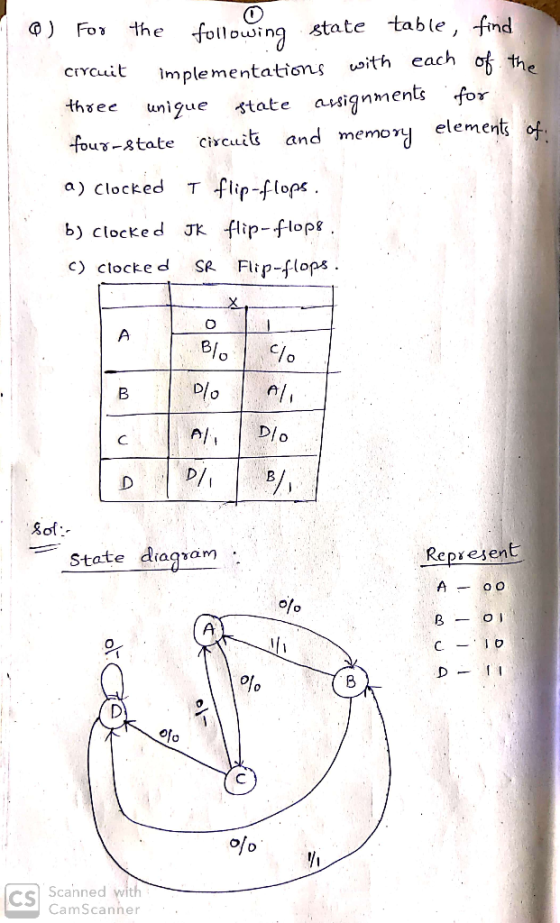 1
Q) For the following state table, find
circuit implementations with each of the
three unique state assignments for
four-state circuits and memory elements of.
a) Clocked T flip-flops.
b) Clocked JK flip-flops.
c) clocked SR Flip-flops.
X
A 0 1
B/0 C/0
B D/0 A/1
C A/1 D/0
D D/1 B/1
Sol:-
State diagram :
Represent
A - 00
B - 01
C - 10
D - 11
0/0
A
1/1
0/1
0/0
B
D
0/1
0/0
C
0/0
1/1
CS Scanned with
CamScanner